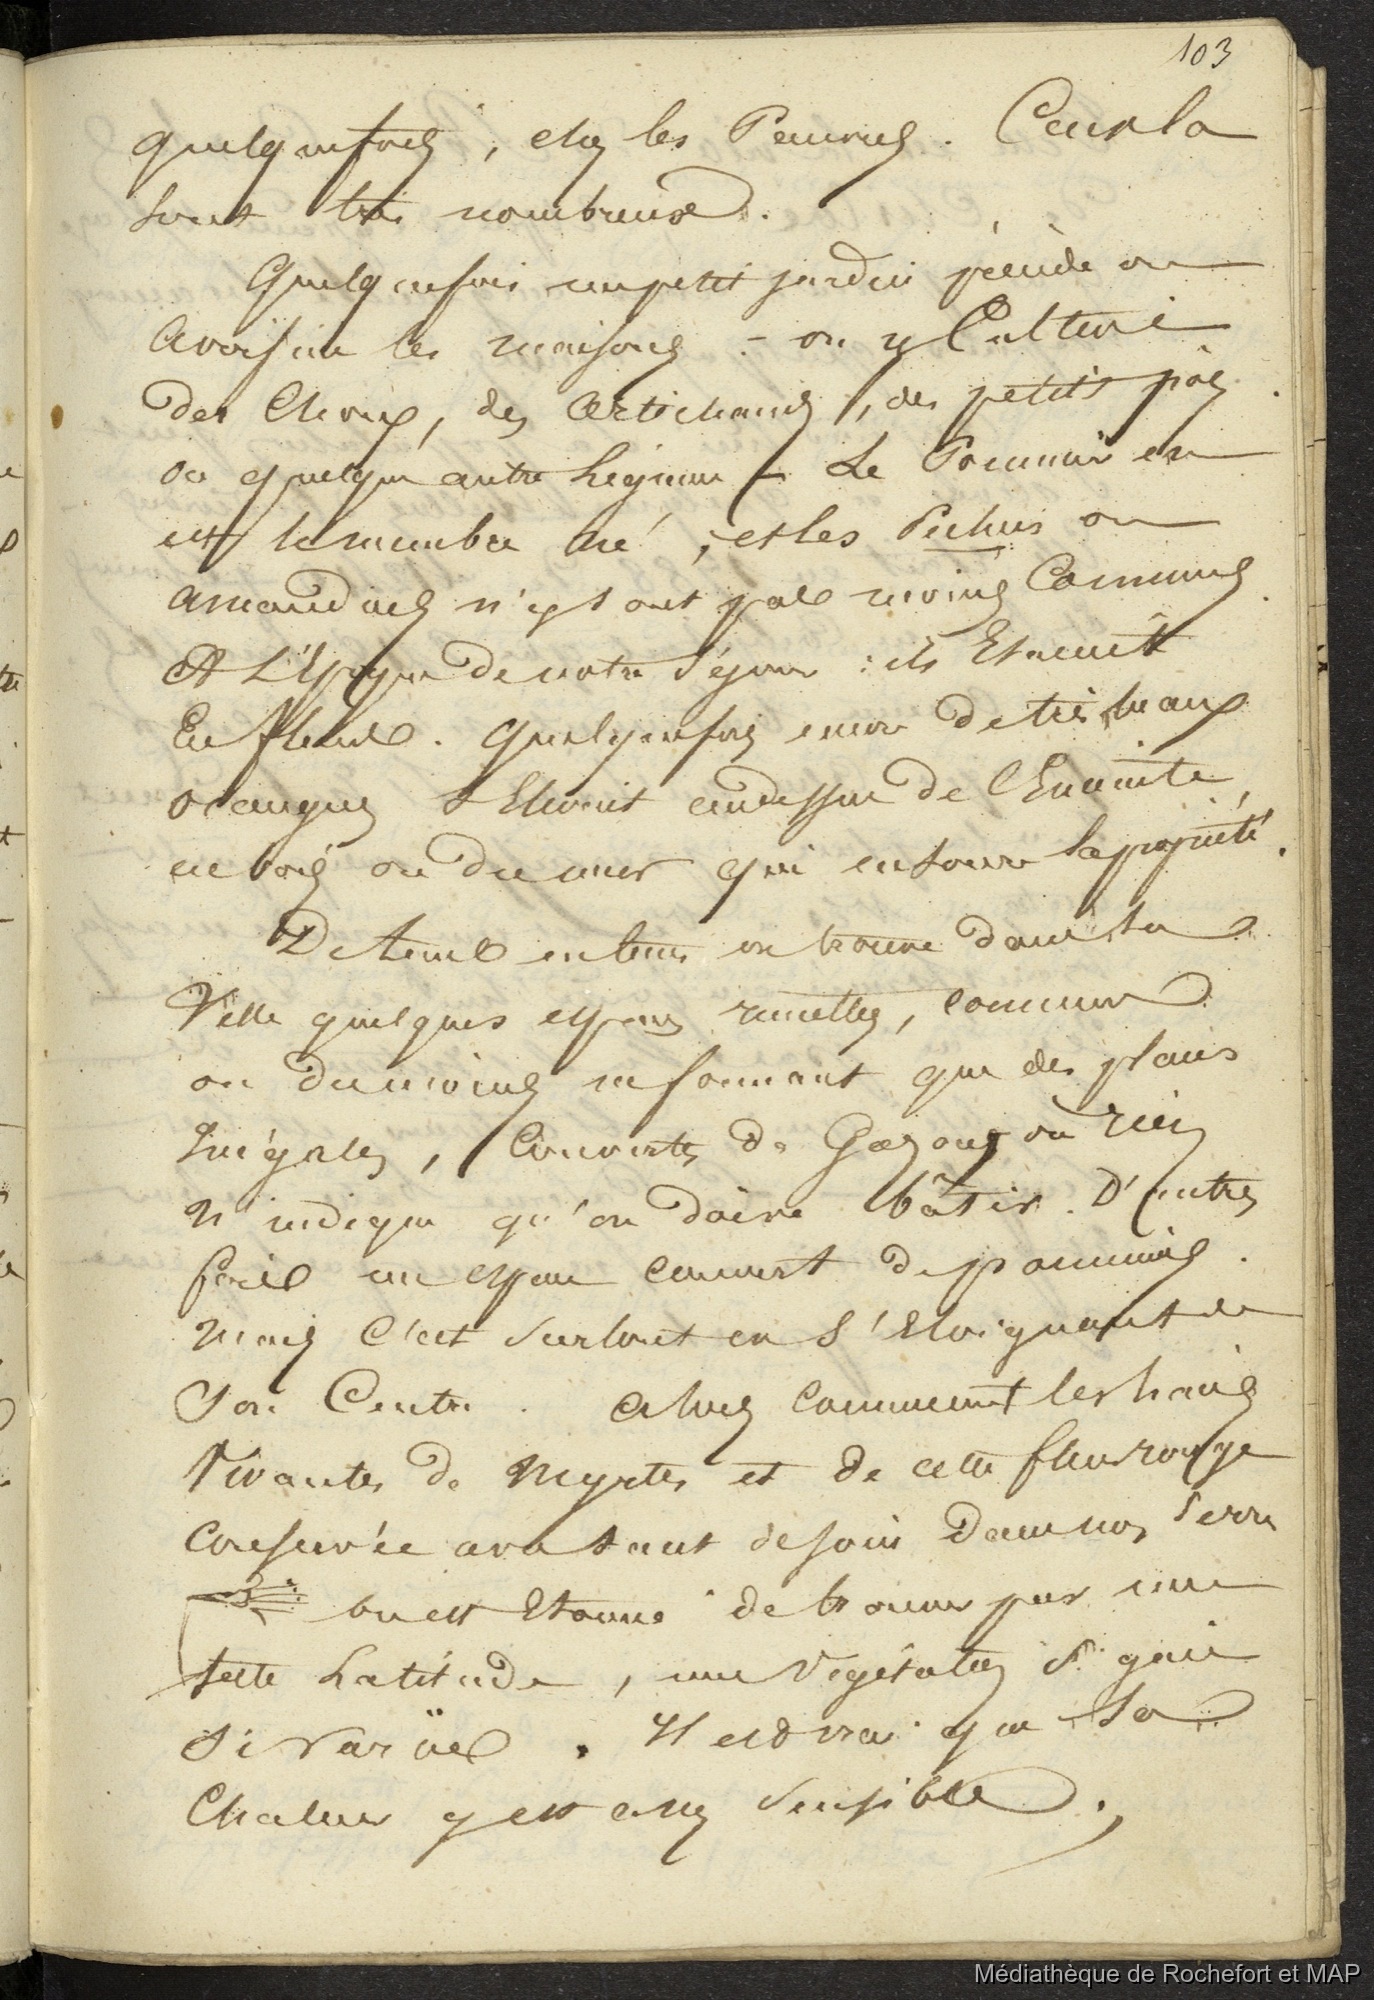 103
quelquefois, chez les Pauvres. Ceux la
sont très nombreux.
Quelquefois un petit jardin précède ou
avoisine les maisons - on y Cultive
des Choux, des Artichauds, des petits pois
ou quelque autre Légume - Le Pommier en
est le membre né ; et les Pichus ou
amandiers n'y sont pas moins Communs.
A L'Epoque de notre Séjour : ils Etaient
En fleurs. Quelquefois encore de très beaux
orangers S'Elevent au dessus de l'Enceinte,
en bois ou du mur qui entoure la propriété.
De tems en tems on trouve dans la
Ville quelques espaces, Communs
ou du moins ne formant que des plans
Inégales, Couverts de Gazons où rien
N'indique qu'on doive bâtir. D'autres
fois un espace Couvert de pommiers.
Mais C'est Surtout en S'Eloignant de
Son Centre. alors Commencent les haies
Vivantes de Myrtes et de cette fleur rouge
Conservée avec tant de soin dans nos Serres
on est Etonné de trouver par une
telle Latitude, une Végétation Si gaie
Si Variée. Il est vrai que La
Chaleur y est assez Sensible.
Médiathèque de Rochefort et MAP